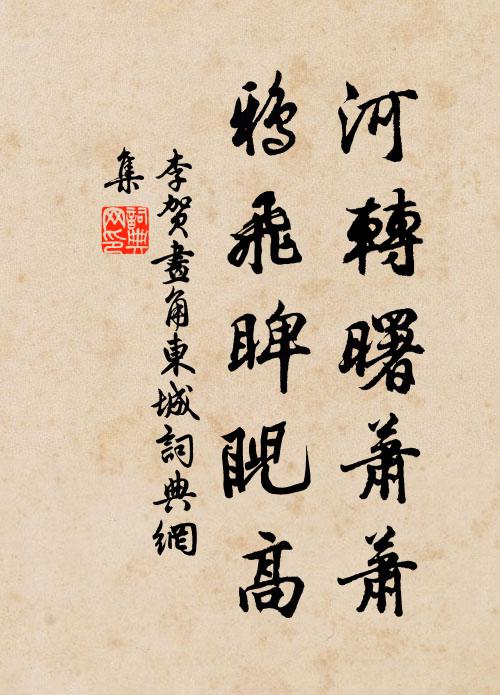 河轉曙蕭蕭
鴉飛睥睨高
李賀畫角東城詞典網
集
詞典網印